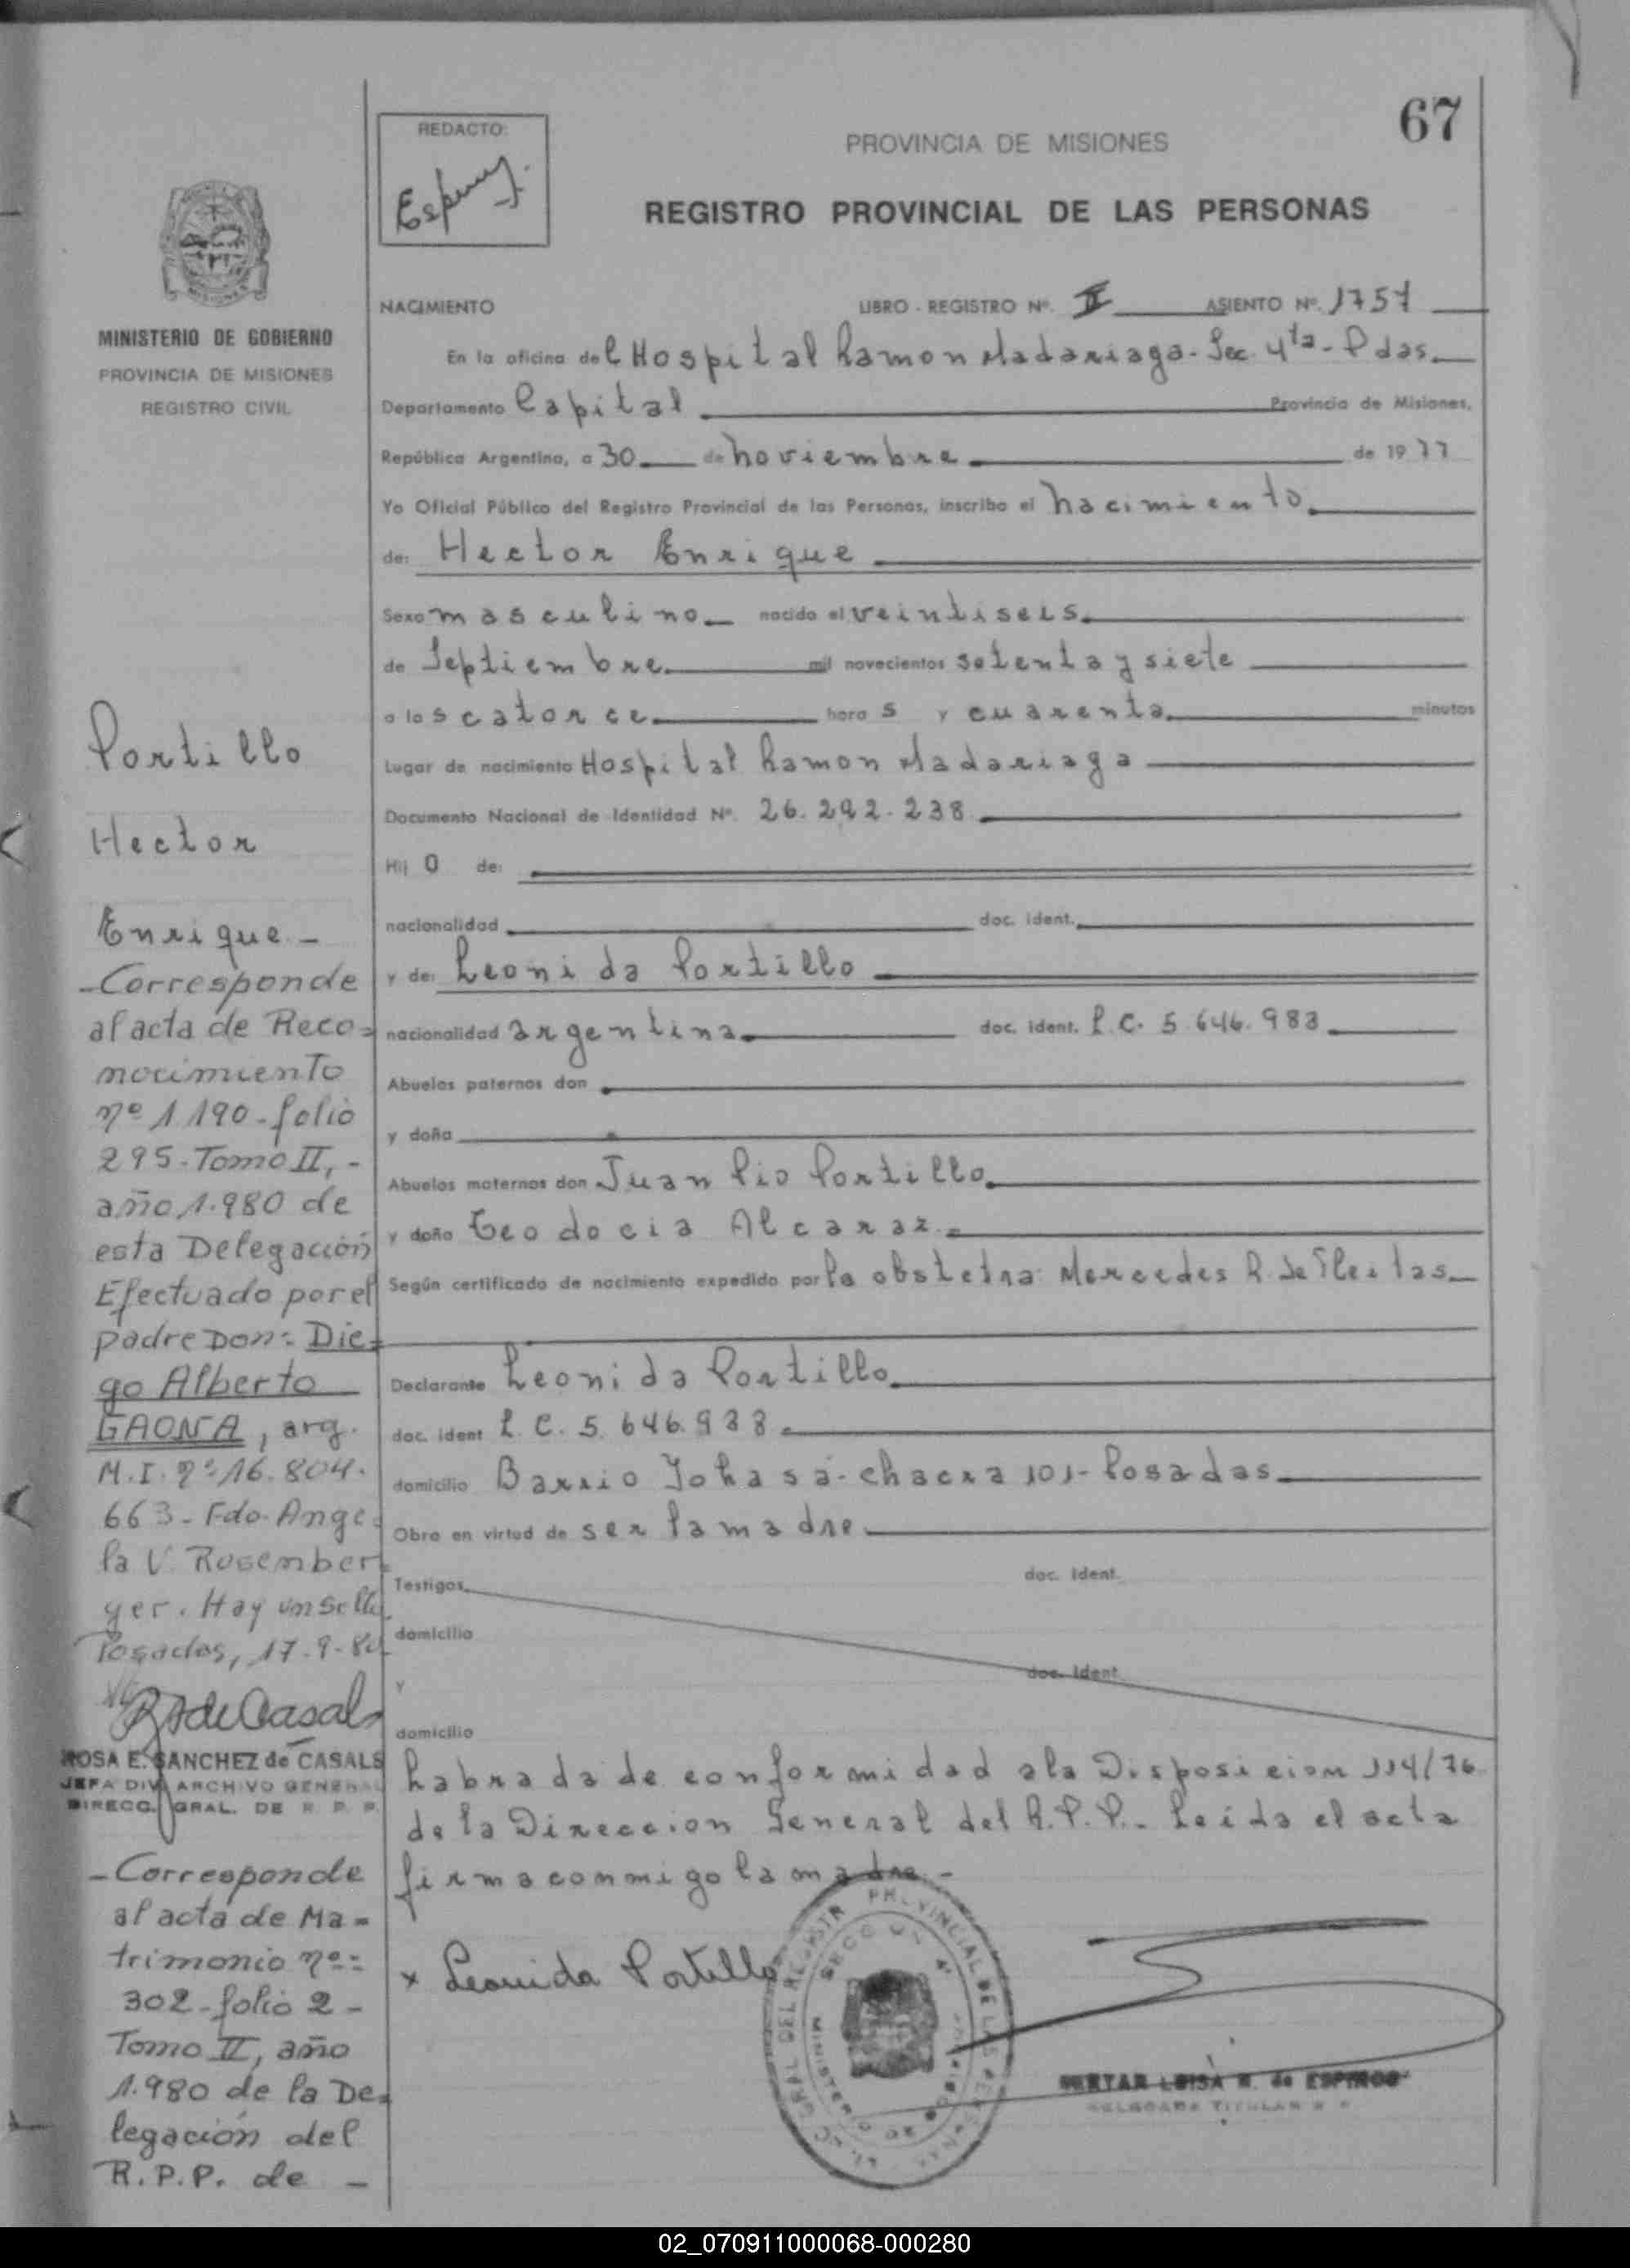 67
REDACTO:
PROVINCIA DE MISIONES
REGISTRO PROVINCIAL DE LAS PERSONAS
NACIMIENTO LIBRO - REGISTRO Nº. II ASIENTO Nº. 1757
En la oficina del Hospital Ramon Madariaga - Sec. 4ta - Pdas.
Departamento Capital Provincia de Misiones,
República Argentina, a 30 de noviembre de 1977
Yo Oficial Público del Registro Provincial de las Personas, inscribo el nacimiento
de: Hector Enrique
Sexo masculino nacido el veintiseis
de Septiembre mil novecientos setenta y siete
a las catorce horas y cuarenta minutos
Lugar de nacimiento Hospital Ramon Madariaga
Documento Nacional de Identidad Nº. 26.292.238
Hijo de:
nacionalidad doc. ident.
y de: Leonida Portillo
nacionalidad argentina doc. ident. L.C. 5.646.983
Abuelos paternos don
y doña
Abuelos maternos don Juan Pio Portillo
y doña Teodocia Alcaraz
Según certificado de nacimiento expedido por la obstetra: Mercedes R. de Fleitas
Declarante Leonida Portillo
doc. ident L.C. 5.646.938
domicilio Barrio Yohasá - chacra 101 - Posadas
Obra en virtud de ser la madre
Testigos doc. ident.
domicilio
y doc. ident.
domicilio
Labrada de conformidad a la Disposicion 114/76
de la Direccion General del R.P.P. - Leida el acta
firma conmigo la madre. -
x Leonida Portillo
MINISTERIO DE GOBIERNO
PROVINCIA DE MISIONES
REGISTRO CIVIL
Portillo
Hector
Enrique -
- Corresponde
al acta de Reco=
nocimiento
nº 1190 - folio
295 - Tomo II, -
año 1.980 de
esta Delegación
Efectuado por el
padre Don: Die=
go Alberto
GAONA, arg.
M.I. nº 16.804.
663 - Fdo. Ange=
la V. Rosember
ger. Hay un sello
Posadas, 17-9-80
R S de Casals
ROSA E. SANCHEZ de CASALS
JEFA DIV. ARCHIVO GENERAL
DIRECC. GRAL. DE R. P. P.
- Corresponde
al acta de Ma=
trimonio nº:
302 - folio 2 -
Tomo II, año
1.980 de la De=
legación del
R.P.P. de -
02_070911000068-000280